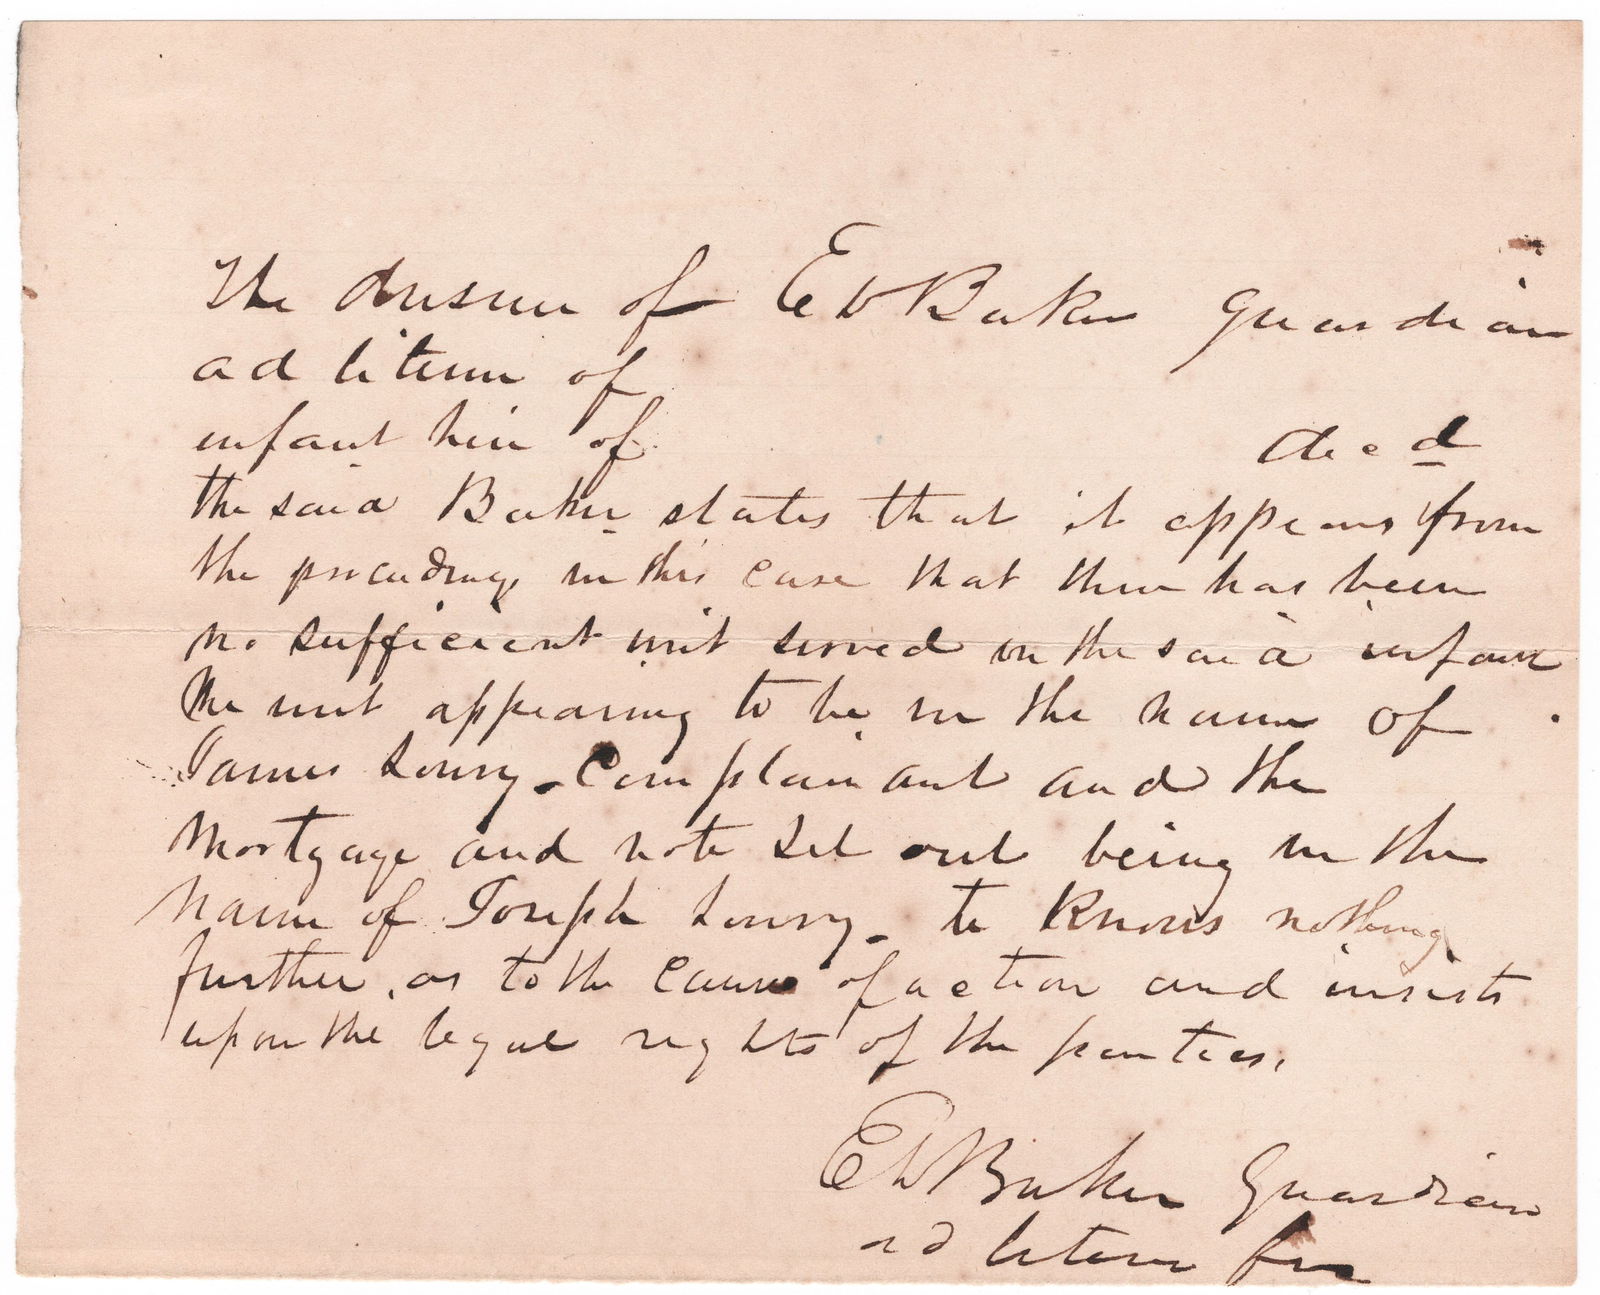 The Answer of E D Baker Guardian
ad litem of
infant heir of decd
the said Baker states that it appears from
the proceedings in this case that there has been
no sufficient writ served on the said infant
the writ appearing to be in the name of
James Lowry - Complainant and the
Mortgage and note set out being in the
name of Joseph Lowry - he knows nothing
further, as to the cause of action and insists
upon the legal rights of the parties.
E D Baker Guardian
ad litem for